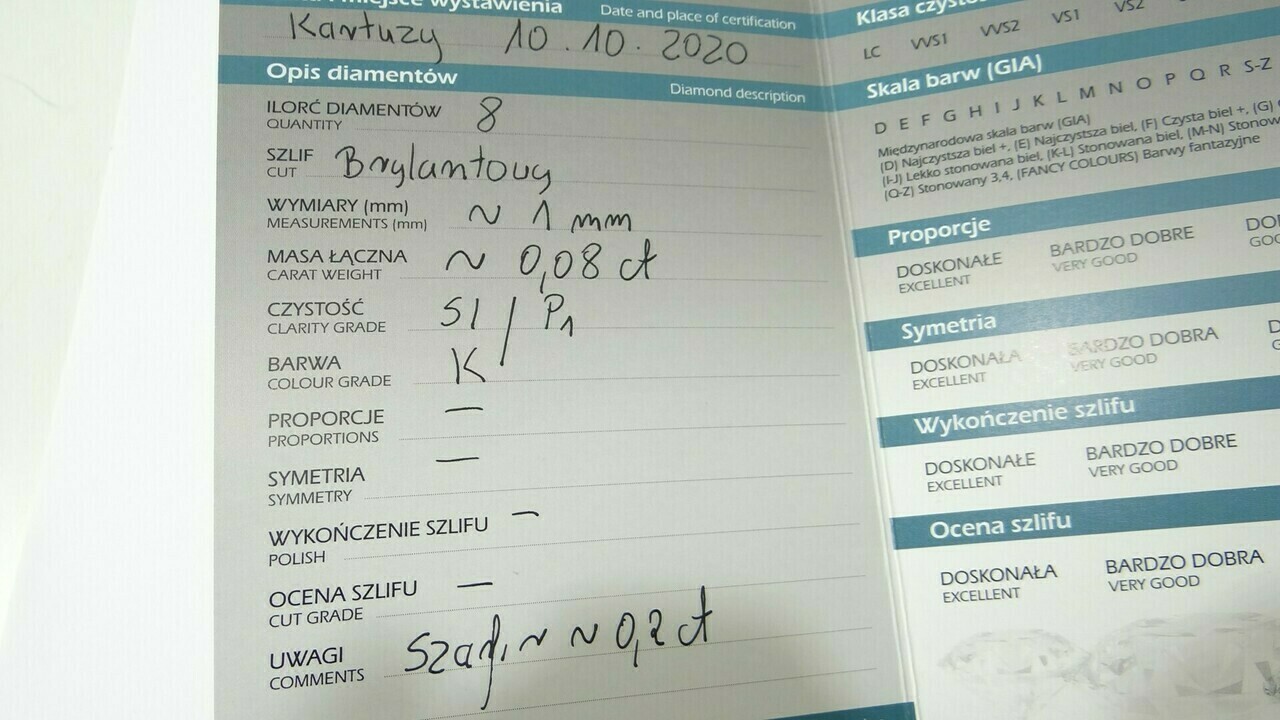 i miejsce wystawienia Date and place of certification
Kartuzy 10.10.2020
Opis diamentów Diamond description
ILORĆ DIAMENTÓW 8
QUANTITY
SZLIF Brylantowy
CUT
WYMIARY (mm) ~ 1 mm
MEASUREMENTS (mm)
MASA ŁĄCZNA ~ 0,08 ct
CARAT WEIGHT
CZYSTOŚĆ SI / P1
CLARITY GRADE
BARWA K
COLOUR GRADE
PROPORCJE —
PROPORTIONS
SYMETRIA —
SYMMETRY
WYKOŃCZENIE SZLIFU —
POLISH
OCENA SZLIFU —
CUT GRADE
UWAGI Szafir ~ 0,2 ct
COMMENTS
Klasa
LC VVS1 VVS2 VS1 VS2
Skala barw (GIA)
D E F G H I J K L M N O P Q R S-Z
Międzynarodowa skala barw (GIA)
(D) Najczystsza biel +, (E) Najczystsza biel, (F) Czysta biel +, (G)
(I-J) Lekko stonowana biel, (K-L) Stonowana biel, (M-N)
(Q-Z) Stonowany 3,4, (FANCY COLOURS) Barwy fantazyjne
Proporcje
DOSKONAŁE BARDZO DOBRE
EXCELLENT VERY GOOD
Symetria
DOSKONAŁA BARDZO DOBRA
EXCELLENT VERY GOOD
Wykończenie szlifu
DOSKONAŁE BARDZO DOBRE
EXCELLENT VERY GOOD
Ocena szlifu
DOSKONAŁA BARDZO DOBRA
EXCELLENT VERY GOOD